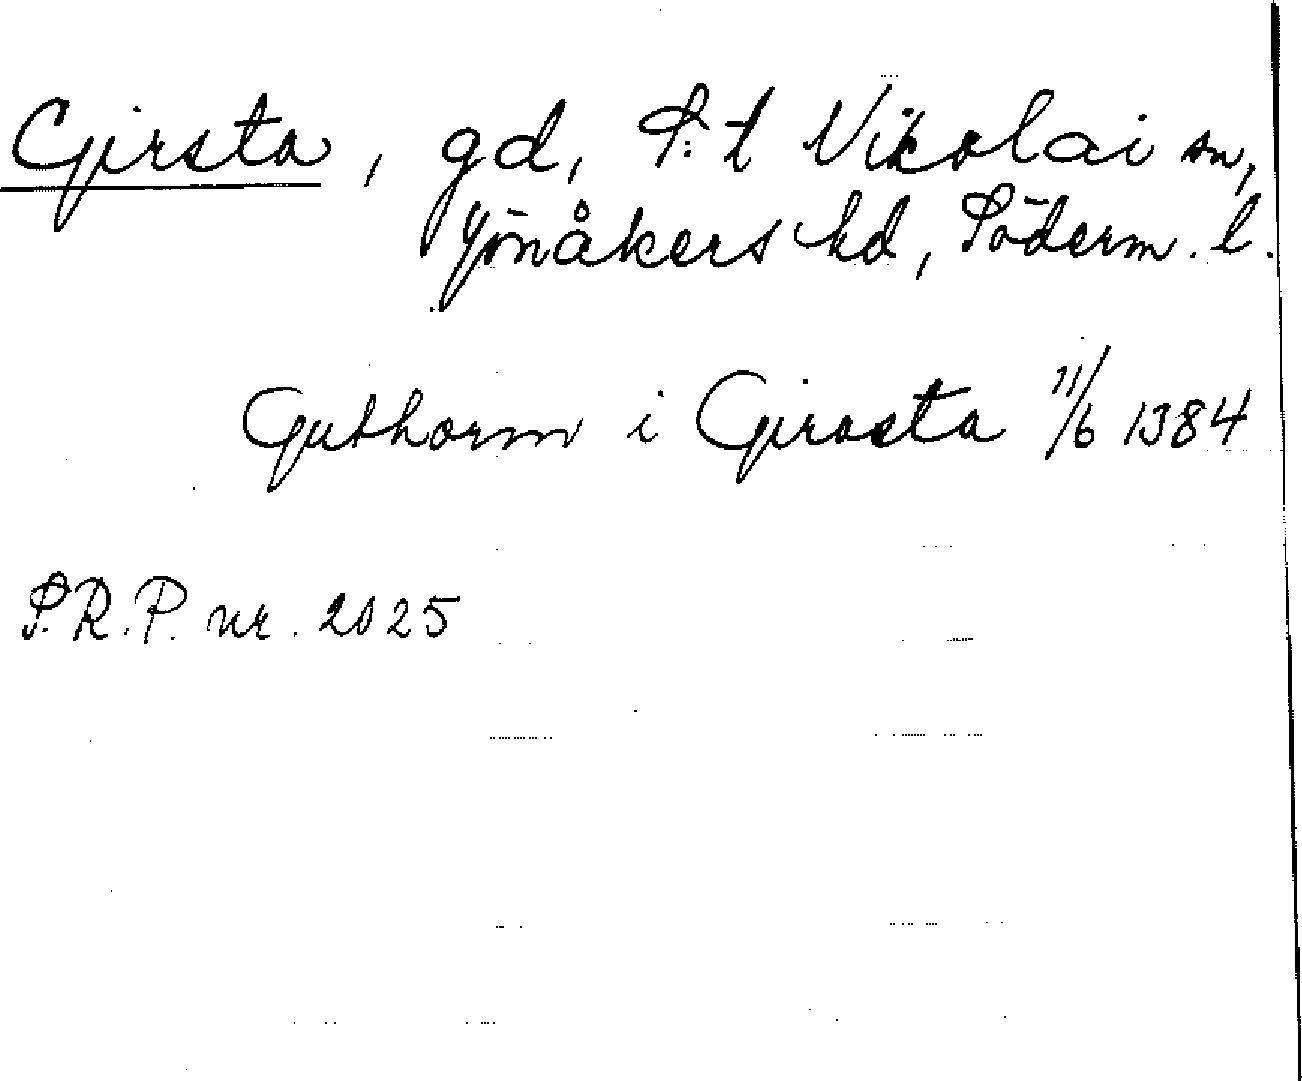 Girsta, gd, S:t Nikolai sn,
Jönåkers hd, Söderm. l.
Guthorm i Girasta 11/6 1384
S.R.P. nr. 2025